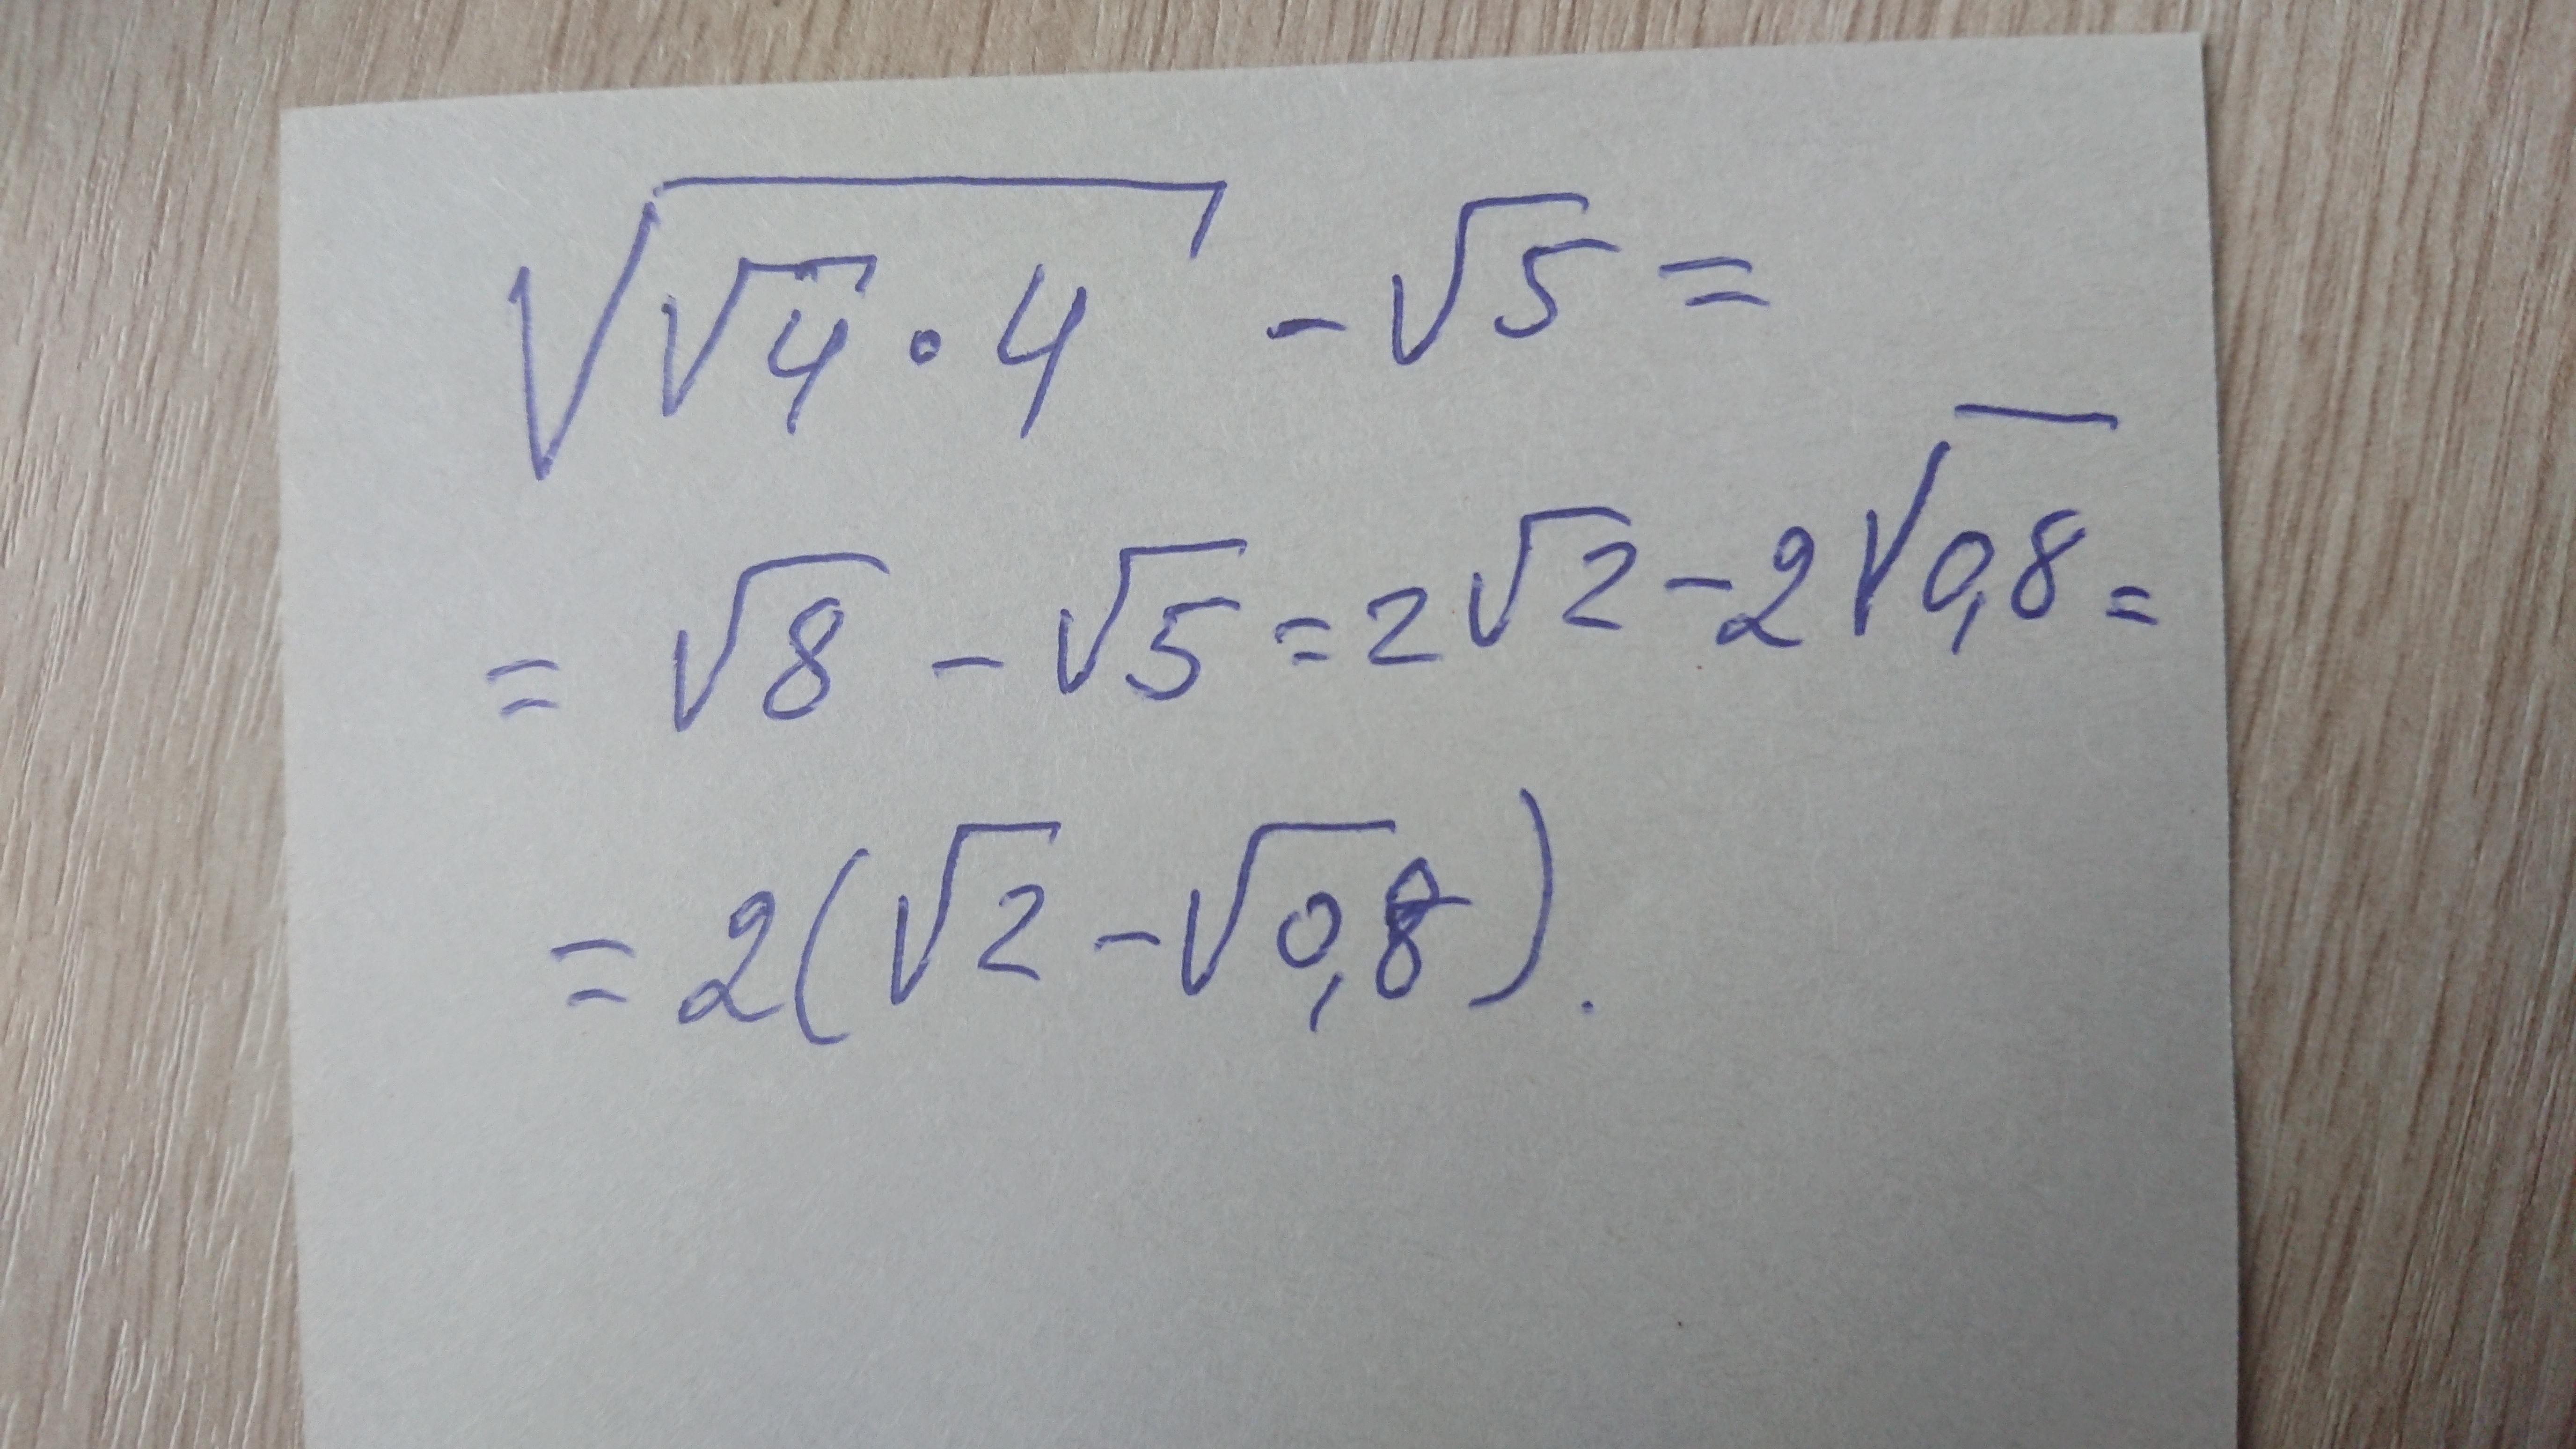 √(√4 · 4) - √5 =
= √8 - √5 = 2√2 - 2√0,8 =
= 2(√2 - √0,8).